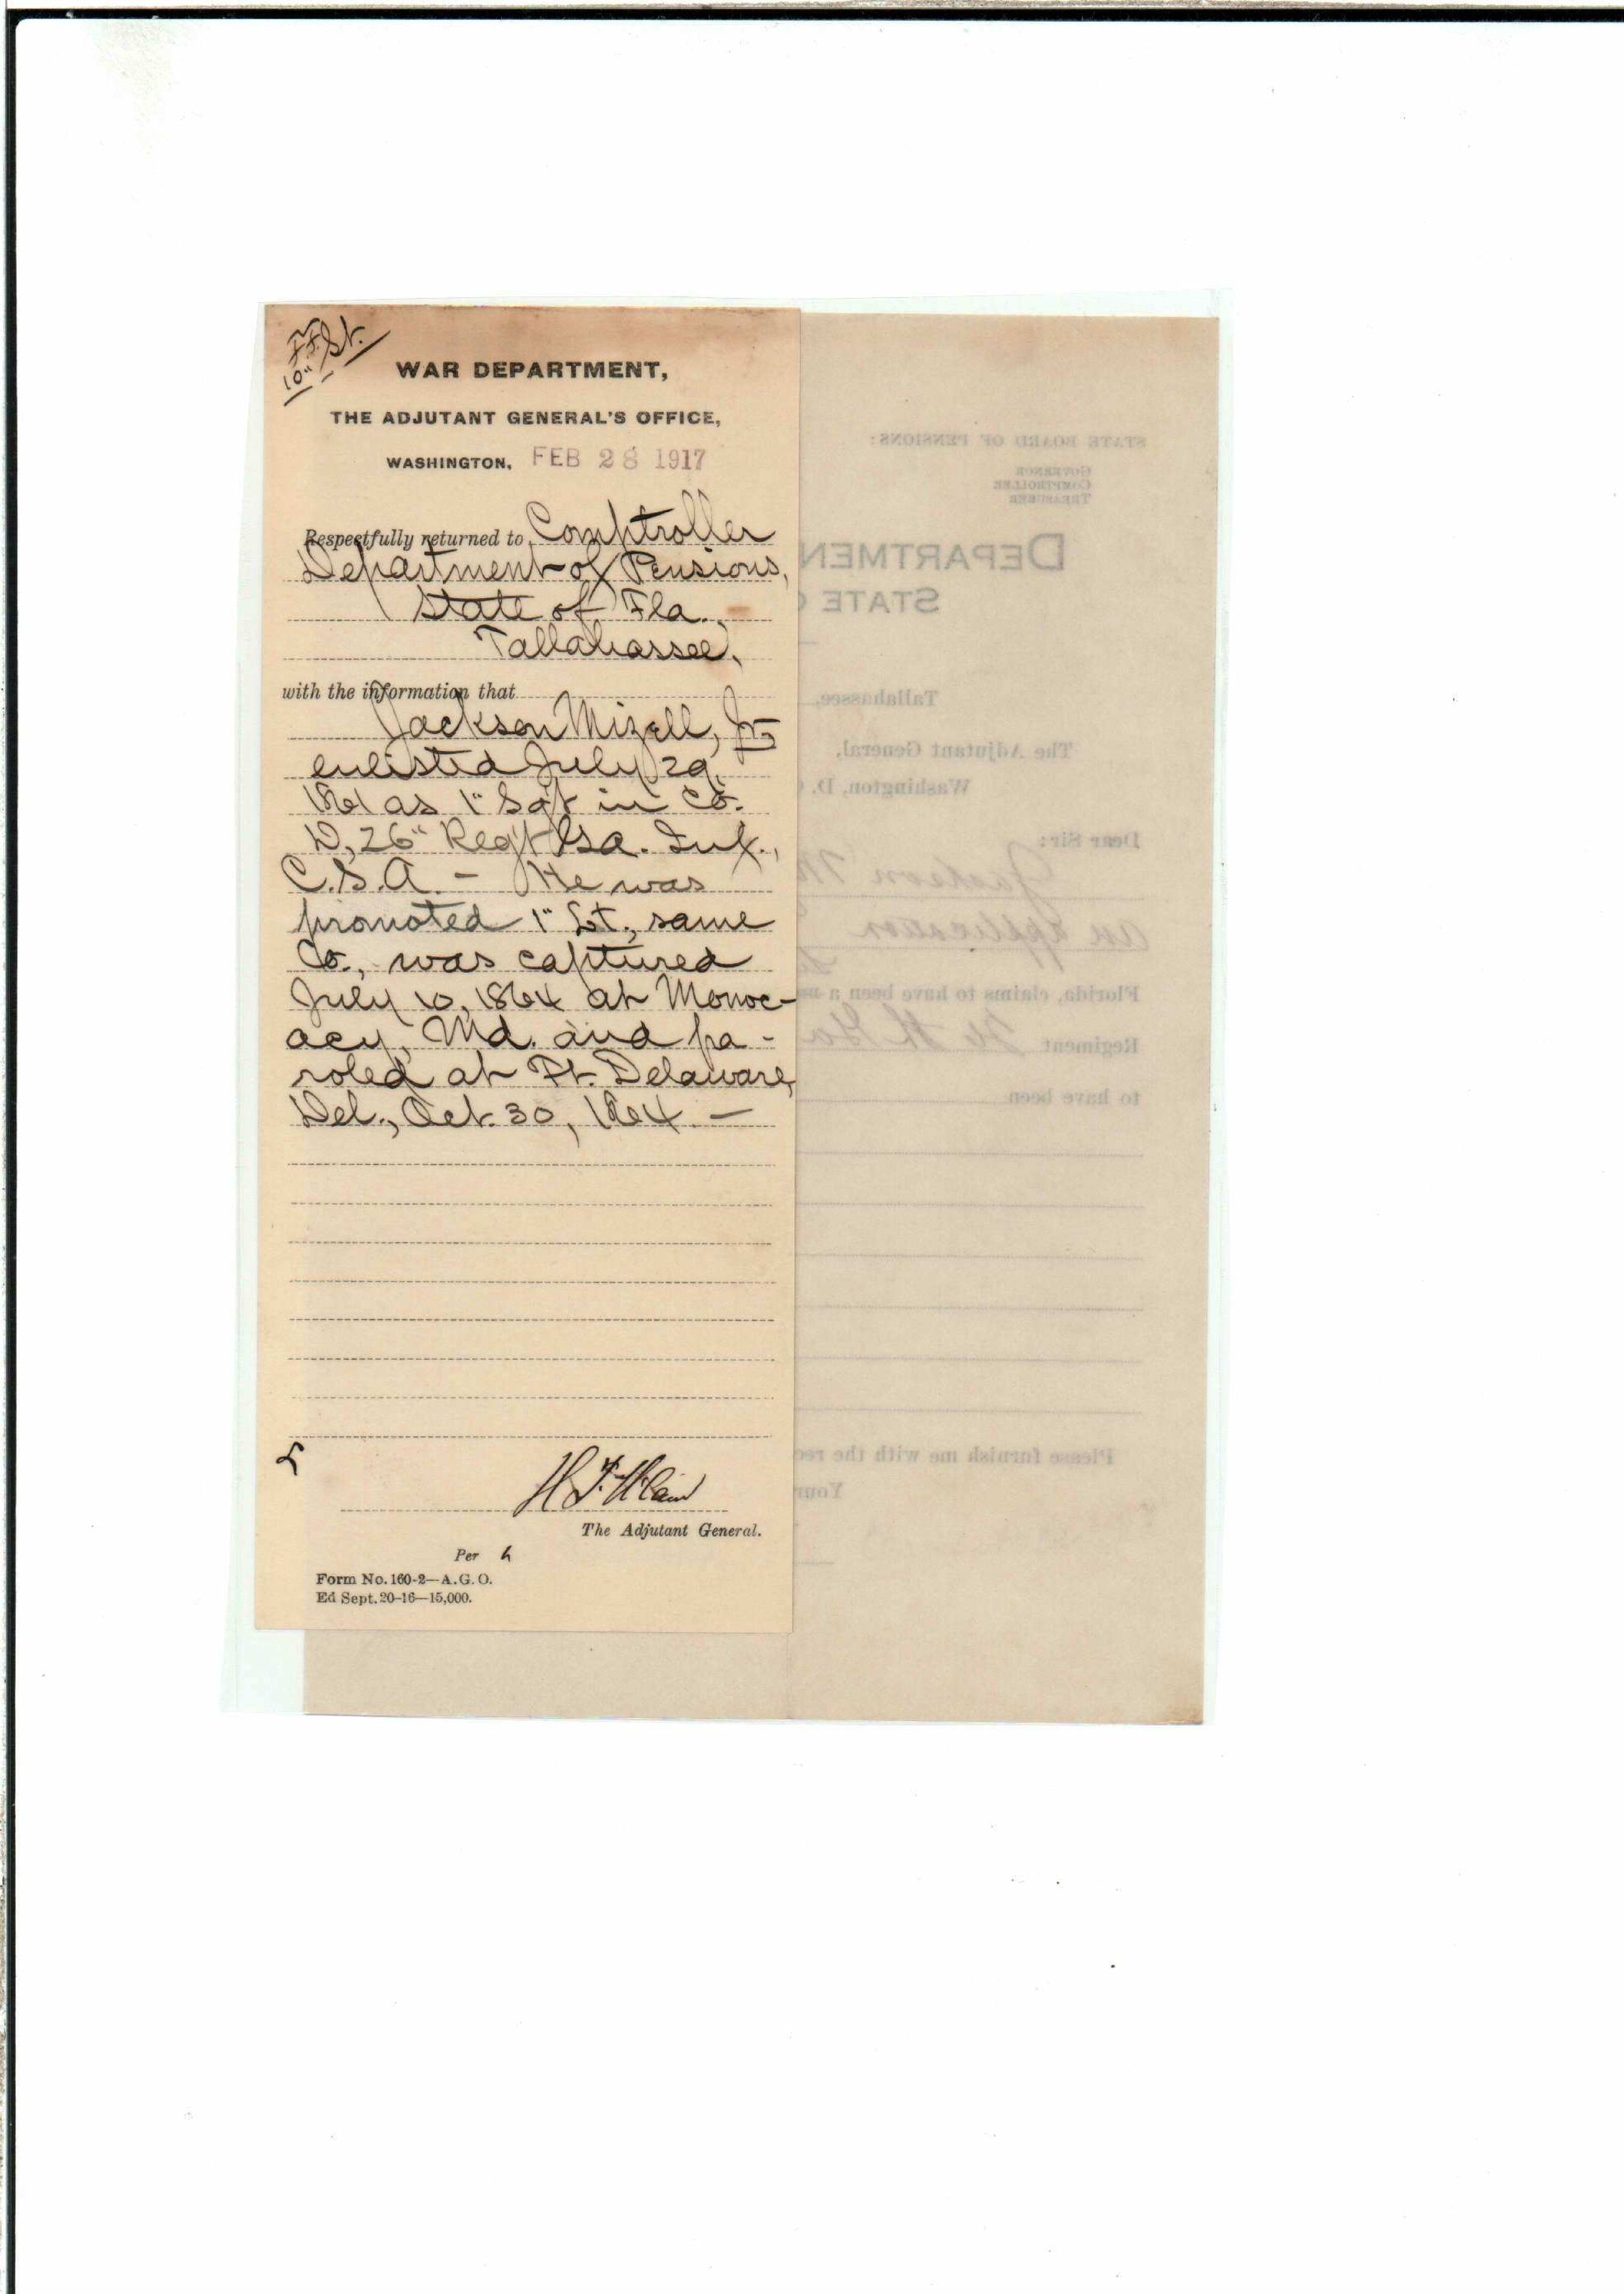 WAR DEPARTMENT,
THE ADJUTANT GENERAL'S OFFICE,
WASHINGTON, FEB 28 1917
Respectfully returned to Comptroller
Department of Pensions,
State of Fla.,
Tallahassee,
with the information that
Jackson Mizell, Jr.
enlisted July 29,
1861 as 1" Sgt in Co.
D, 26" Reg't Ga. Inf.,
C.S.A. - He was
promoted 1" Lt., same
Co., was captured
July 10, 1864 at Monoc-
acy, Md. and pa-
roled at Ft. Delaware,
Del., Oct. 30, 1864. —
The Adjutant General.
Per h
Form No. 160-2—A.G.O.
Ed Sept. 20-16—15,000.
STATE BOARD OF PENSIONS:
GOVERNOR
COMPTROLLER
TREASURER
DEPARTMEN
STATE
Tallahassee,
The Adjutant General,
Washington, D.
Dear Sir:
Jackson M
an application
Florida, claims to have been a
Regiment
to have been
Please furnish me with the rec
Your